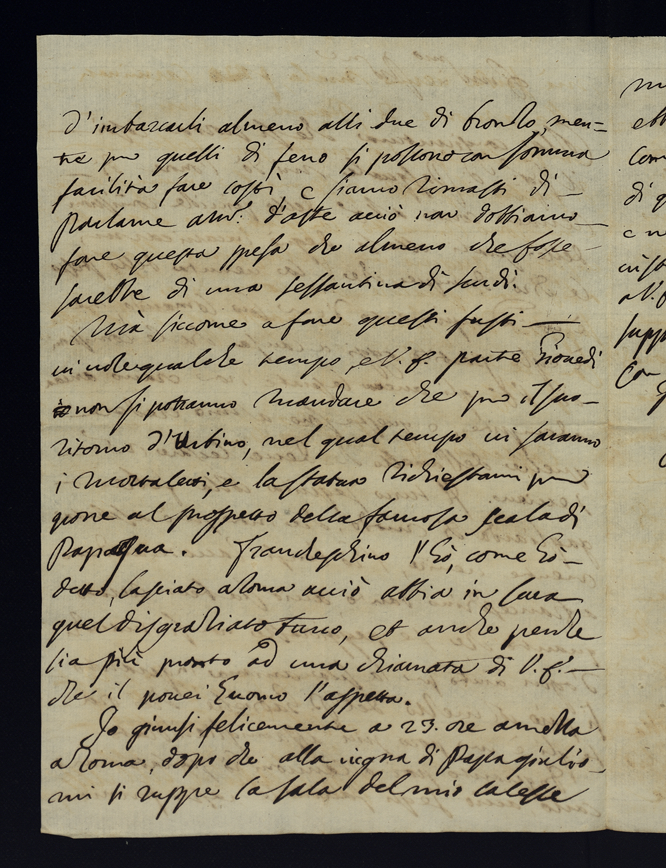 d'imbarcarli almeno alli due di bronzo, men=
tre per quelli di ferro si possono con somma
facilità fare costì, e siamo rimasti di
parlarne anco d'aste acciò non dobbiamo
fare questa spesa che almeno che fosse
sarebbe di una sessantina di scudi.
Mà siccome a fare questi fusti
vi vole qualche tempo, e V. S. parte Giovedì
non si potranno mandare che per il suo
ritorno d'Urbino, nel qual tempo vi saranno
i mortaletti, e la statua richiestami per
porre al prospetto della famosa scala di
Papaqua. Franceschino l'hò, come hò
detto, lasciato a Roma acciò abbia in cura
quel disgraziato turco, et anche perche
sia più pronto ad una chiamata di V. S.
che il pover huomo l'aspetta.
Io giunsi felicemente a 23. ore a
a Roma, dopo che alla vigna di Papa Giulio
mi si ruppe la sala del mio calesse